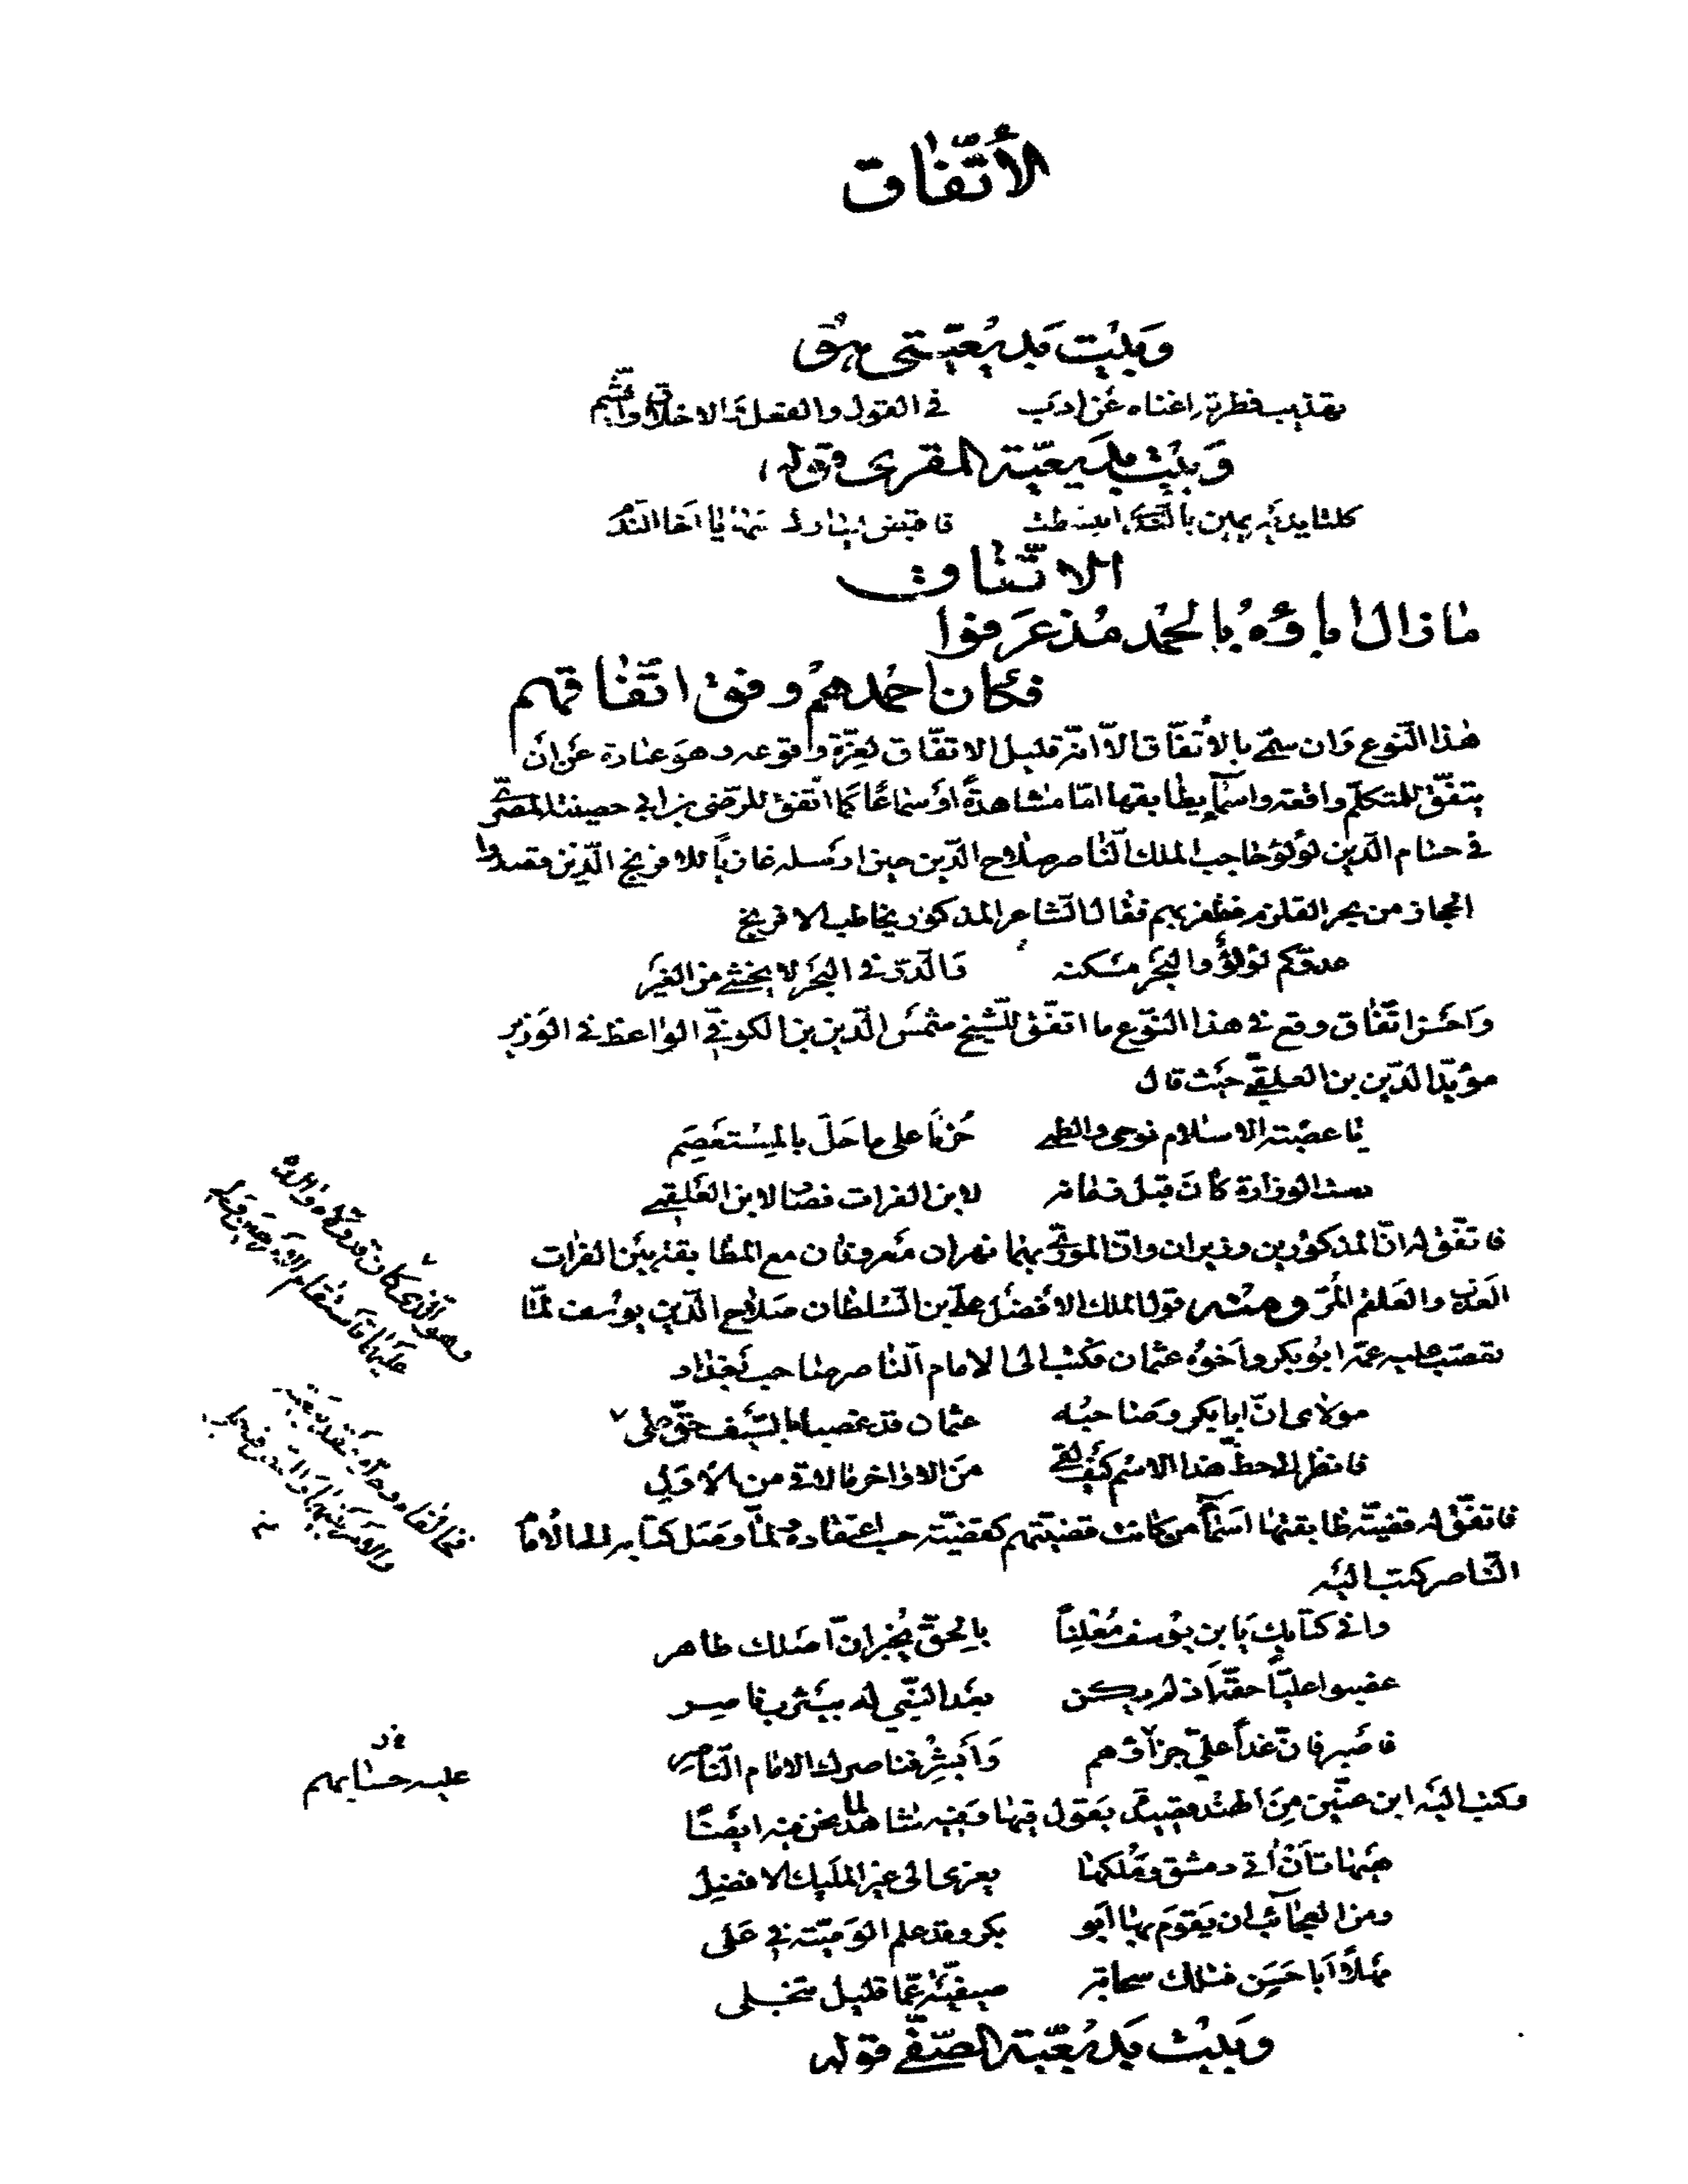 الأتّفاق
وبيت بديعيّتي هو
تهذيب فطرته اغناه عن ادب في القول والفعل والاخلاق والشيم
وبيت بديعيّة المقري قوله
كلتا يديه يمين بالندى انبسطت فاقبض يسارك عنها يا اخا الندم
الاتّفاق
ما زال اباؤه بالحمد مذ عرفوا
فكان احمدهم وفق اتّفاقهم
هذا النّوع وان سمّي بالأتّفاق الاّ انّه قليل الاتفّاق لعزّة وقوعه وهو عبارة عن ان
يتفّق للمتكلّم واقعة واسمآء يطابقها امّا مشاهدةً او سماعًا كما اتّفق للرّضى بن ابي حصينة المصريّ
في حسام الدّين لؤلؤ حاجب الملك النّاصر صلاح الدّين حين ارسله غازيًا للافرنج الّذين قصدوا
الحجاز من بحر القلزم فظفر بهم فقال الشّاعر المذكور يخاطب الافرنج
عدوّكم لؤلؤ والبحر مسكنه فالدّرّ في البحر لا يخشى من الغير
واحسن اتّفاق وقع في هذا النّوع ما اتفّق للشّيخ شمس الدّين بن الكوفيّ الواعظ في الوزير
مؤيّد الدّين بن العلقميّ حيث قال
يا عصبة الاسلام نوحي والطمي حزنا على ما حلّ بالمستعصم
دست الوزارة كان قبل زمانه لابن الفرات فصار لابن العلقمي
فاتّفق له انّ المذكورين وزيران وانّ المورّى بهما نهران معروفان مع المطابقة بين الفرات
العذب والعلقم المرّ ومنه قول الملك الافضل عليّ بن السّلطان صلاح الدّين يوسف لمّا
تعصّب عليه عمّه ابو بكر واخوه عثمان فكتب الى الامام النّاصر صاحب بغداد
مولاى انّ ابا بكر وصاحبه عثمان قد غصبا بالسّيف حقّ علي
فانظر الى حظّ هذا الاسم كيف لقي من الاواخر ما لاقى من الأولِ
فاتفّق له قضيّة طابقتها اسمآء من كانت قضيّتهم كقضيّته حسب اعتقاده ولمّا وصل كتابه الى الأمام
النّاصر كتب اليه
وافى كتابك يا بن يوسف معلنًا بالحقّ يخبر انّ اصلك طاهر
غصبوا عليّاً حقّه اذ لم يكن بعد النّبّي له بيثرب ناصر
فاصبر فانّ غداً عليّ جزاؤهم وابشر فناصرك الامام النّاصر
عليه حسابهم
وكتب اليه ابن عنّين من الهند قصيدة يقول فيها وفيه شاهد لما نحن فيه ايضًا
هيهات أن أتى دمشق وملكها يعزى الى غير المليك الافضل
ومن العجائب ان يقوم بها ابو بكر وقد علم الوصّية في عَلي
مهلاً ابا حسن فتلك سحابة صيفيّة عمّا قليل تنجلى
وبيت بديعيّة الصّفي قوله